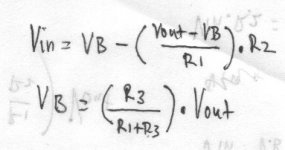 Vin = VB - (Vout - VB / R1) . R2
VB = (R3 / R1+R3) . Vout